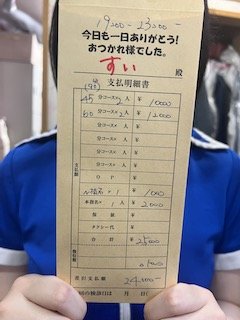 19:00-23:00-
今日も一日ありがとう!
おつかれ様でした。
すい 殿
支払明細書
45 分コース× 2人 ¥ 10000
60 分コース× 2人 ¥ 12,000
分コース× 人 ¥
分コース× 人 ¥
分コース× 人 ¥
分コース× 人 ¥
小計 ¥
支払額
指名× 1 ¥ 1000
本指名× 1人 ¥ 2,000
保証 ¥
タクシー代 ¥
合計 ¥ 25,000
控除額
1000
差引支払額 24,000-
次回の検診日は 月 日